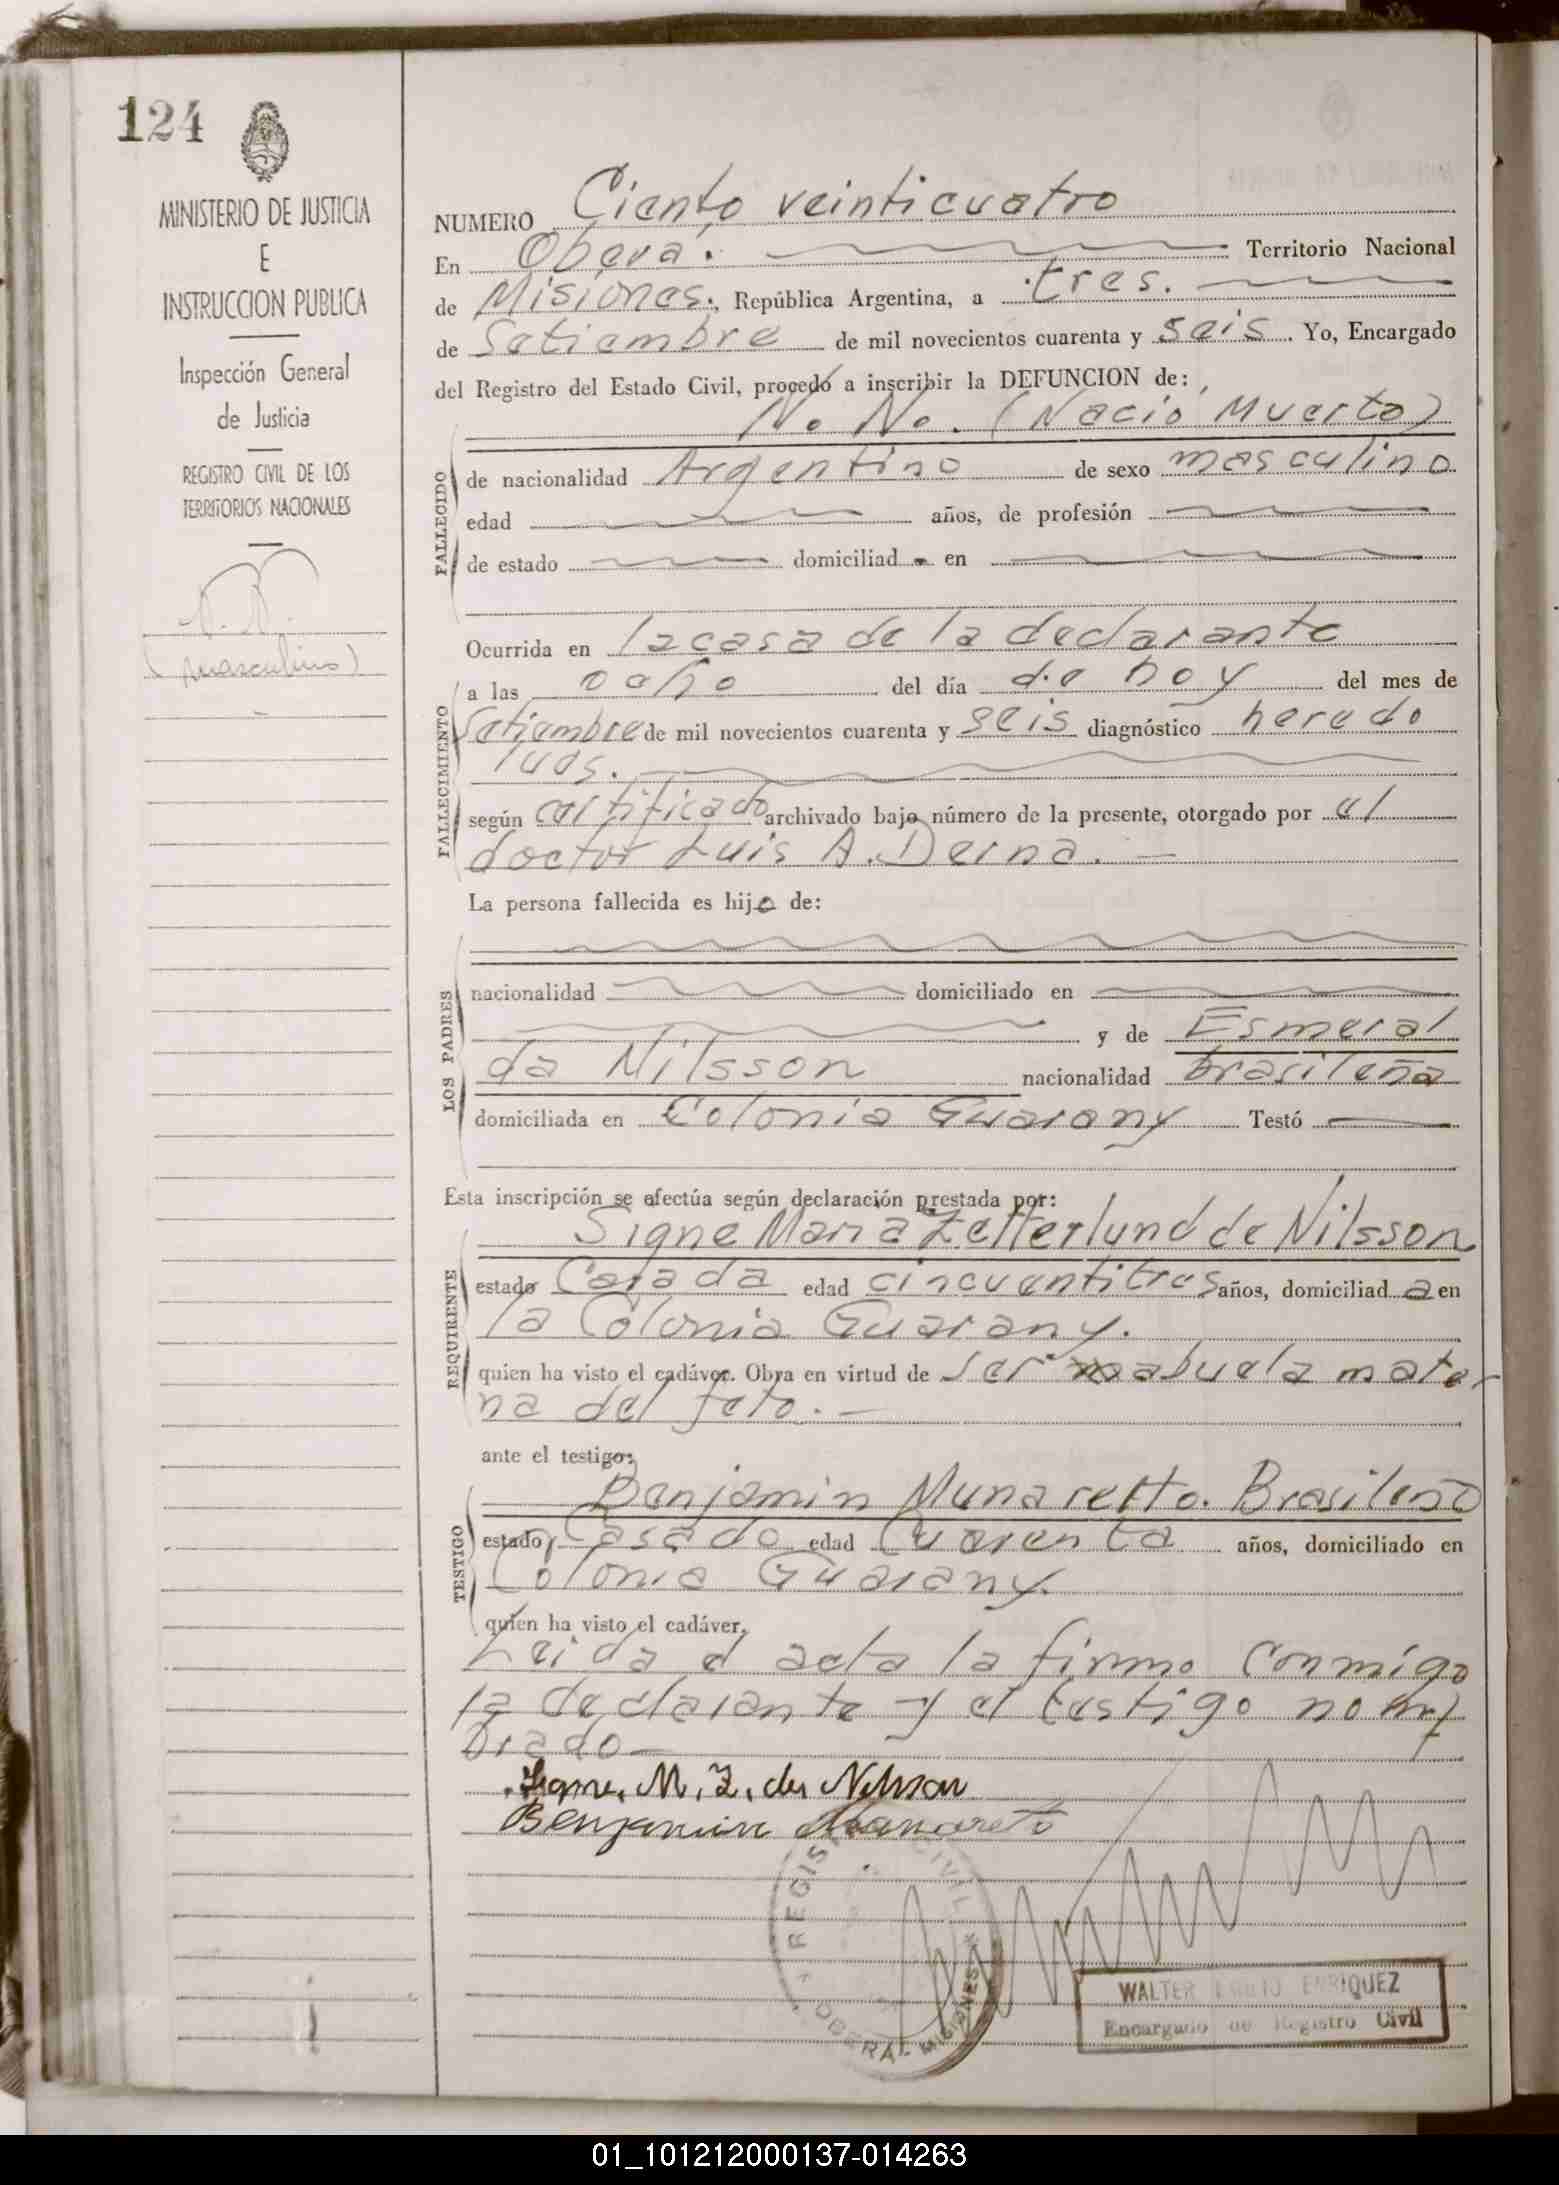 124
MINISTERIO DE JUSTICIA
E
INSTRUCCION PUBLICA
Inspección General
de Justicia
REGISTRO CIVIL DE LOS
TERRITORIOS NACIONALES
N. N.
(masculino)
NUMERO Ciento veinticuatro
En Oberá. Territorio Nacional
de Misiones., República Argentina, a tres.
de Setiembre de mil novecientos cuarenta y seis. Yo, Encargado
del Registro del Estado Civil, procedo a inscribir la DEFUNCION de:
N. N. (Nació Muerto)
FALLECIDO
de nacionalidad Argentino de sexo masculino
edad años, de profesión
de estado domiciliad en
Ocurrida en la casa de la declarante
FALLECIMIENTO
a las ocho del día de hoy del mes de
Setiembre de mil novecientos cuarenta y seis diagnóstico heredo
lues.
según certificado archivado bajo número de la presente, otorgado por el
doctor Luis A. Derna.
La persona fallecida es hijo de:
LOS PADRES
nacionalidad domiciliado en
y de Esmeral
da Nilsson nacionalidad brasileña
domiciliada en Colonia Guarany Testó
Esta inscripción se efectúa según declaración prestada por:
REQUIRENTE
Signe Maria Zetterlund de Nilsson
estado Casada edad cincuentitres años, domiciliad a en
la Colonia Guarany.
quien ha visto el cadáver. Obra en virtud de ser abuela mater
na del feto.
ante el testigo:
TESTIGO
Benjamin Munaretto. Brasileño
estado, Casado edad Cuarenta años, domiciliado en
Colonia Guarany.
quien ha visto el cadáver.
Leida el acta la firma conmigo
la declarante y el testigo nom
brado
Signe. M. Z. de Nilsson
Benjamin Munareto
REGISTRO CIVIL
OBERA - MISIONES
WALTER ENRIQUEZ
Encargado de Registro Civil
01_101212000137-014263